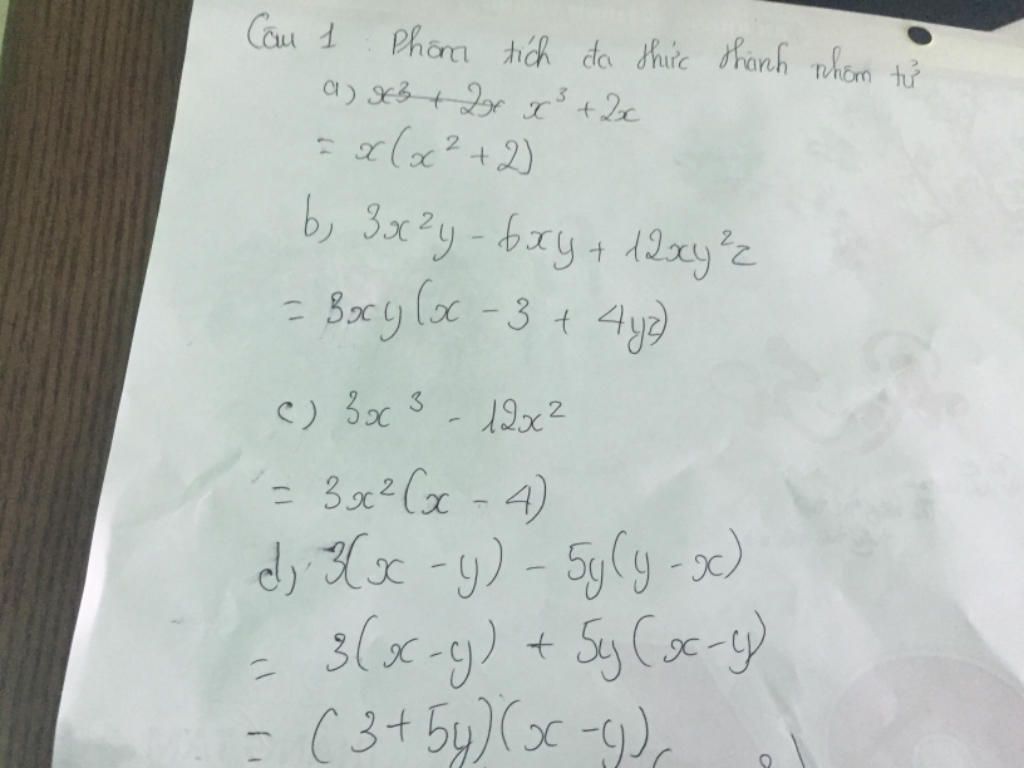 Câu 1 : Phâm tích đa thức thành nhâm tử
a) x³ + 2x x³ + 2x
= x(x² + 2)
b) 3x²y - 6xy + 12xy²z
= 3xy(x - 3 + 4yz)
c) 3x³ - 12x²
= 3x²(x - 4)
d) 3(x - y) - 5y(y - x)
= 3(x - y) + 5y(x - y)
= (3 + 5y)(x - y)